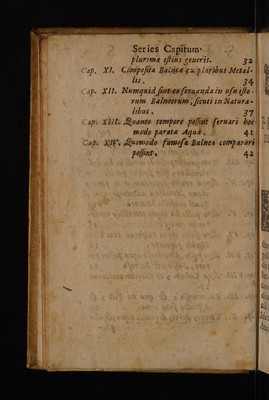 Series Capitum.
plurima istius generis. 32
Cap. XI. Composita Balnea ex pluribus Metal-
lis. 34
Cap. XII. Numquid sint ea servanda in usu isto-
rum Balneorum, sicuti in Natura-
libus. 37
Cap. XIII. Quanto tempore possint servari hoc
modo paratæ Aquæ. 41
Cap. XIV. Quomodo fumosa Balnea comparari
possint. 42